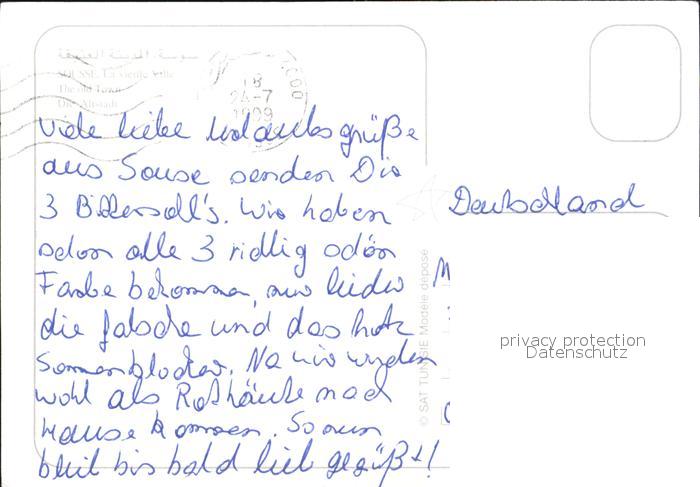 سوسة. المدينة العتيقة
SOUSSE. La vieille Ville
The old Town
Die Altstadt
18
24-7
1999
Viele liebe Urlaubsgrüße
aus Souse senden Dir
3 Bittersohl's. Wir haben
schon alle 3 richtig schön
Farbe bekommen, nur leider
die falsche und das trotz
Sonnenblocker. Na wir werden
wohl als Rothäute nach
Hause kommen. So nun
bleib bis bald lieb gegrüßt!
Deutschland
© SAT TUNISIE Modèle déposé
privacy protection
Datenschutz